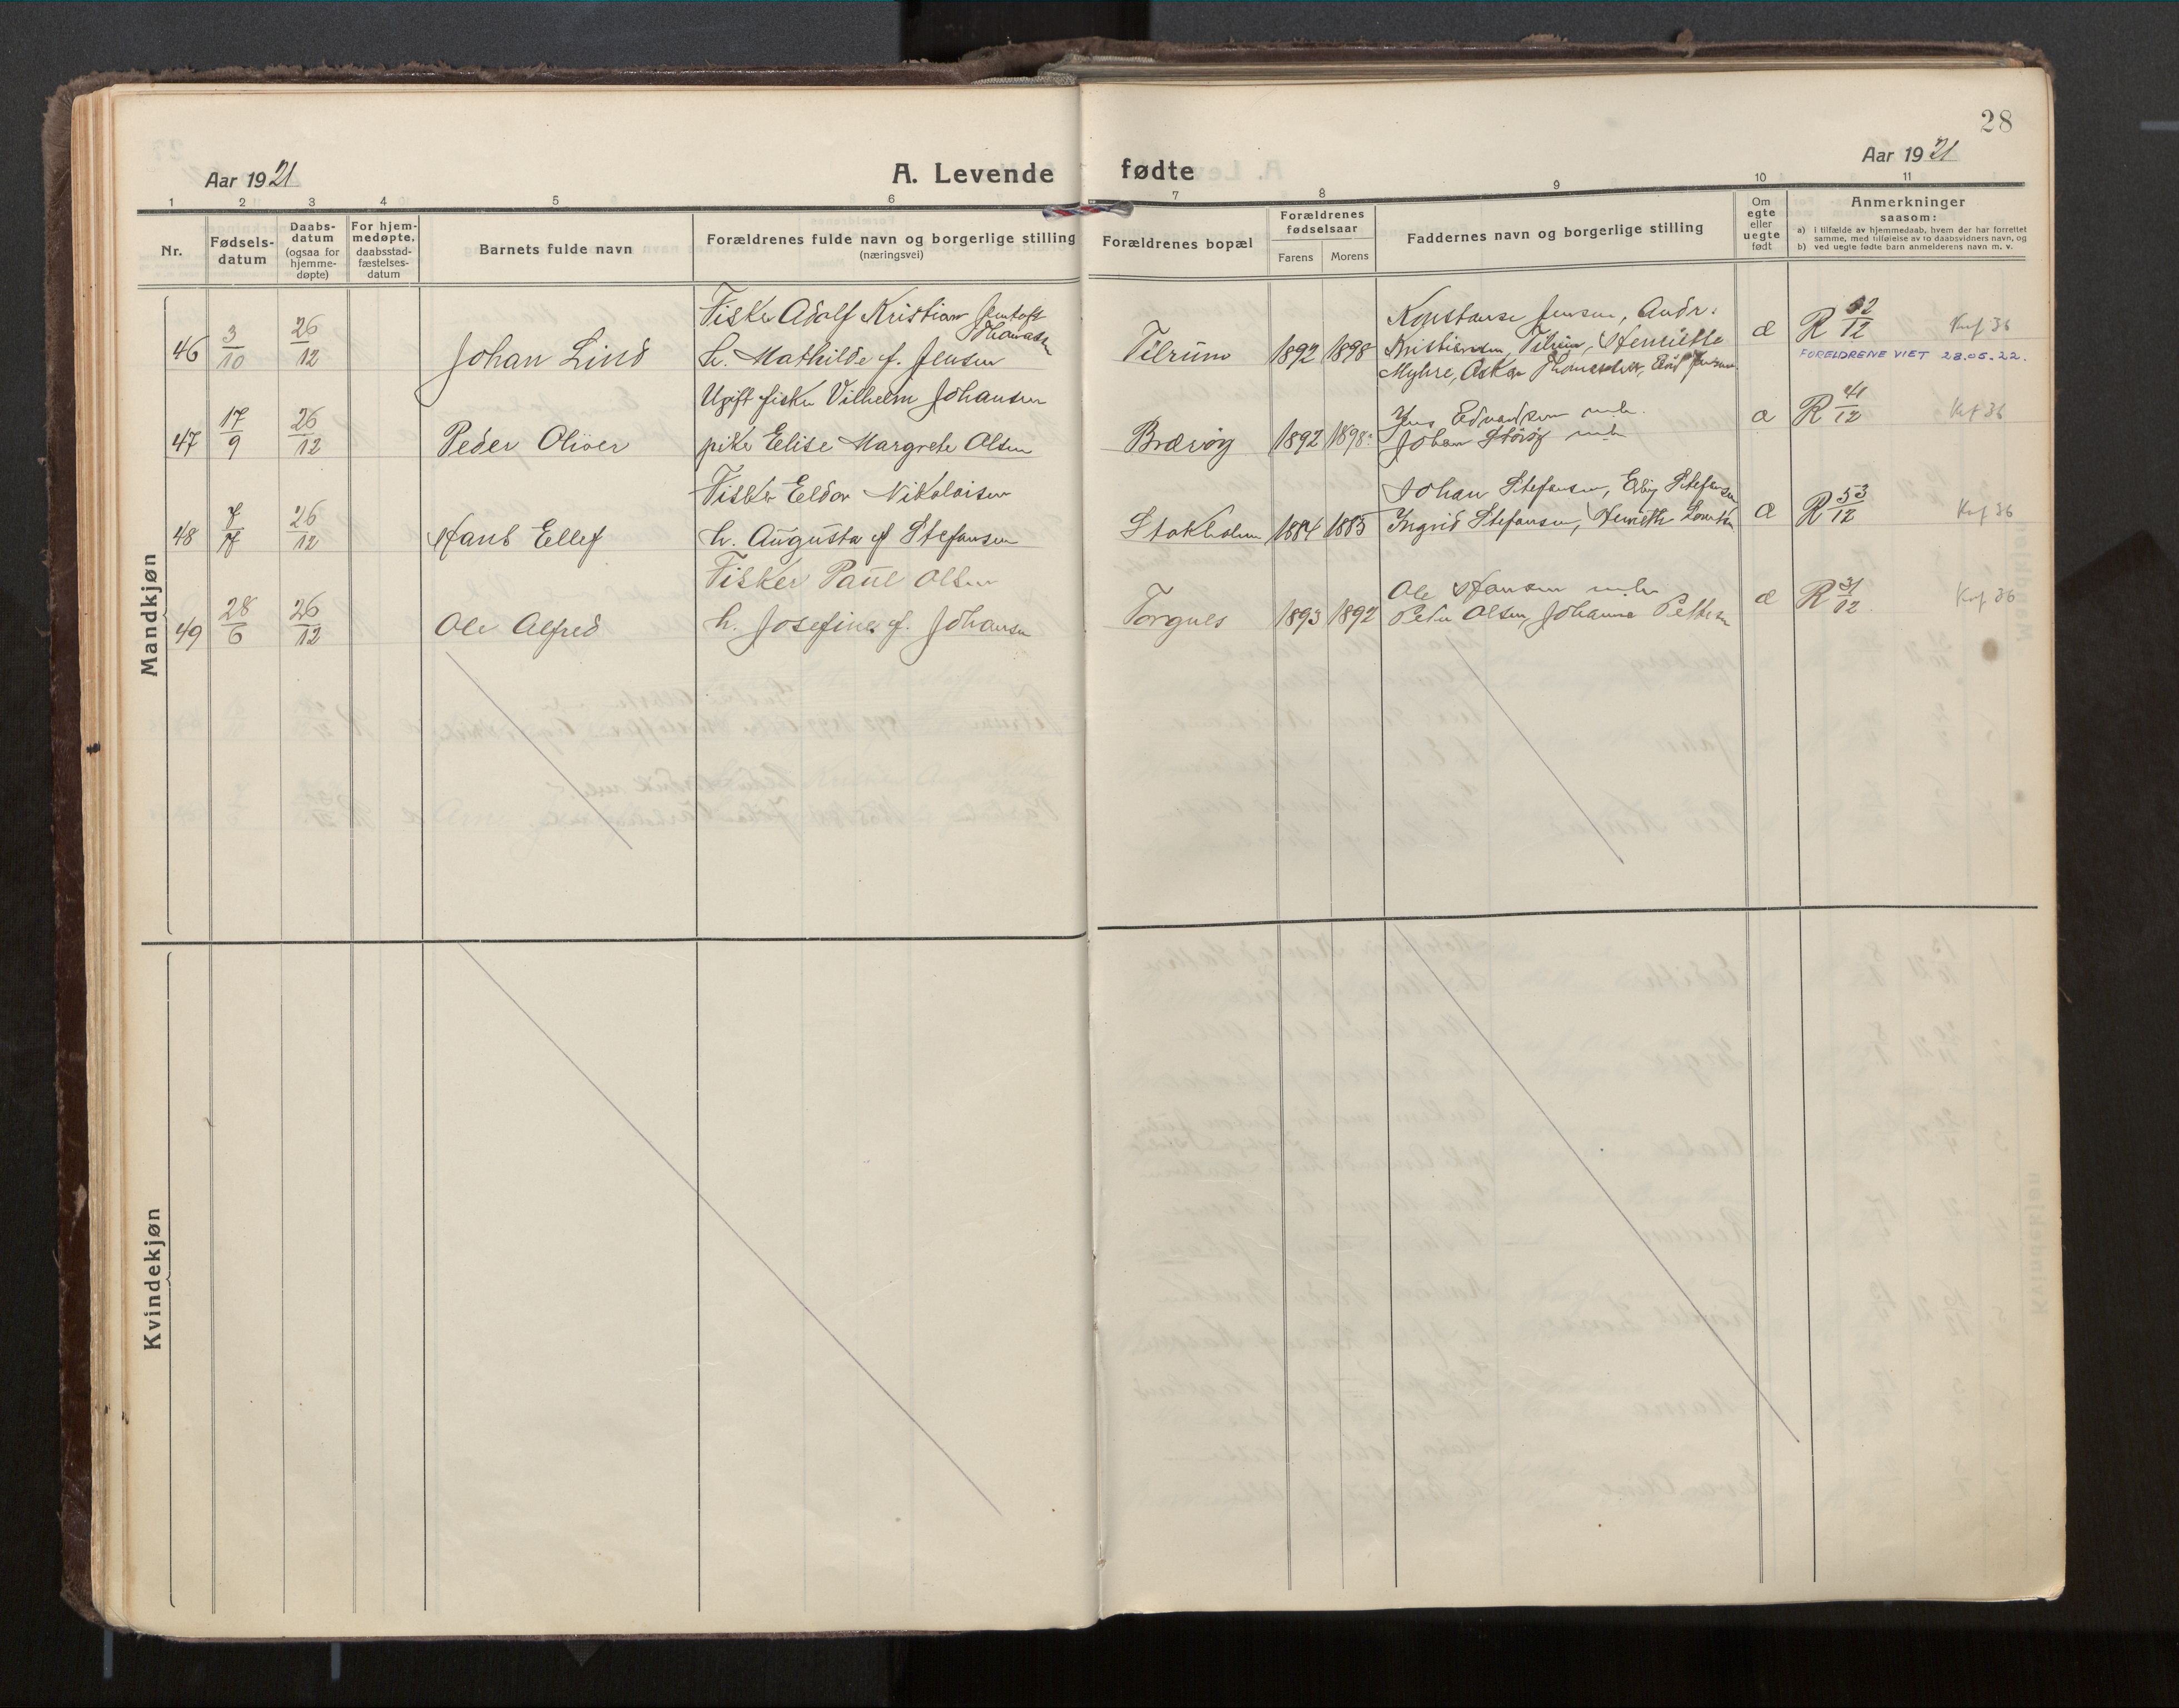 28
Aar 1921
A. Levende fødte
Aar 1921
1 2 3 4 5 6 7 8 9 10 11
Nr.
Fødsels-
datum
Daabs-
datum
(ogsaa for
hjemme-
døpte)
For hjem-
medøpte,
daabsstad-
fæstelses-
datum
Barnets fulde navn
Forældrenes fulde navn og borgerlige stilling
(næringsvei)
Forældrenes bopæl
Forældrenes
fødselsaar
Farens Morens
Faddernes navn og borgerlige stilling
Om
egte
eller
uegte
født
Anmerkninger
saasom:
a) i tilfælde av hjemmedaab, hvem der har forrettet
samme, med tilføielse av to daabsvidners navn, og
b) ved uegte fødte barn anmelderens navn m. v.
Mandkjøn
Fisker Adolf Kristian Jentoft
Thomassen
46 3/10 26/12 Johan Lind h. Mathilde f. Jensen Tilrum 1892 1898
Konstanse Jensen, Andr.
Kristiansen, Tilrum, Henriette
Myhre, Oskar Thomassen, Jensen
æ R 32/12 Knf 36
FORELDRENE VIET 28.05.22.
Ugift fisker Vilhelm Johansen
47 17/9 26/12 Peder Oliver pike Elise Margrete Olsen 1892 1898
Jens Edvardsen m.h.
Johan m.h.
R 41/12 Knf 36
Fisker Eldor Nikolaisen
48 7/7 26/12 Hans Ellef h. Augusta f Stefansen Stokholm 1884 1885
Johan Stefansen, Stefansen
Ingrid Stefansen,
æ R 53/12 Knf 36
Fisker Paul Olsen
49 28/6 26/12 Ole Alfred h. Josefine f. Johansen Torgnes 1893 1892
Ole Hansen m.h.
Peder Olsen, Johanna Pettersen
æ R 31/12 Knf 36
Kvindekjøn